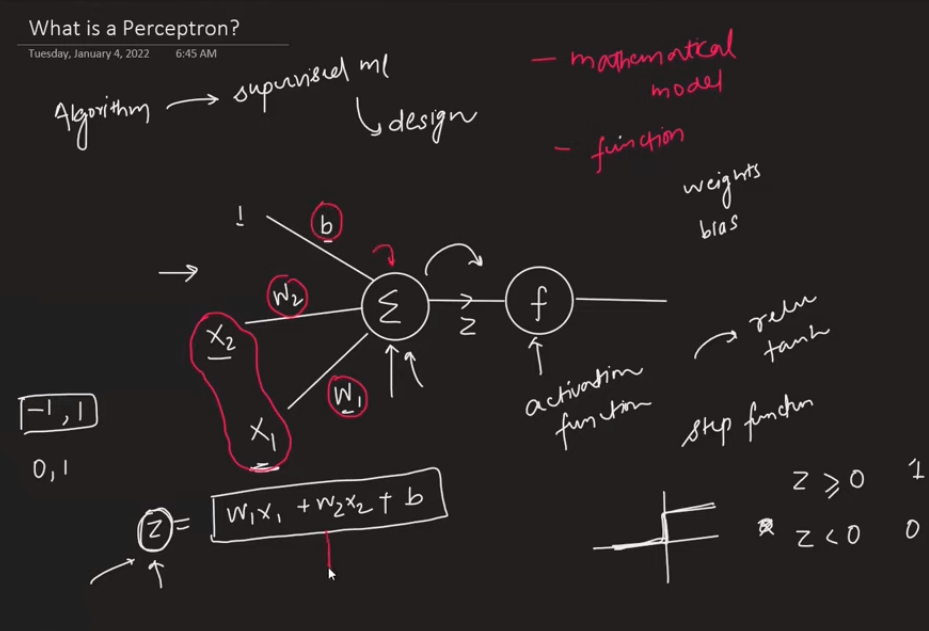 What is a Perceptron?
Tuesday, January 4, 2022 6:45 AM
Algorithm → supervised ml
↳ design
- mathematical
model
- function
weights
bias
1
b
→
W2
Σ
z
f
X2
W1
X1
-1, 1
0, 1
activation
function
→ relu
tanh
step functin
z = W1X1 + W2X2 + b
z ⩾ 0 1
z < 0 0